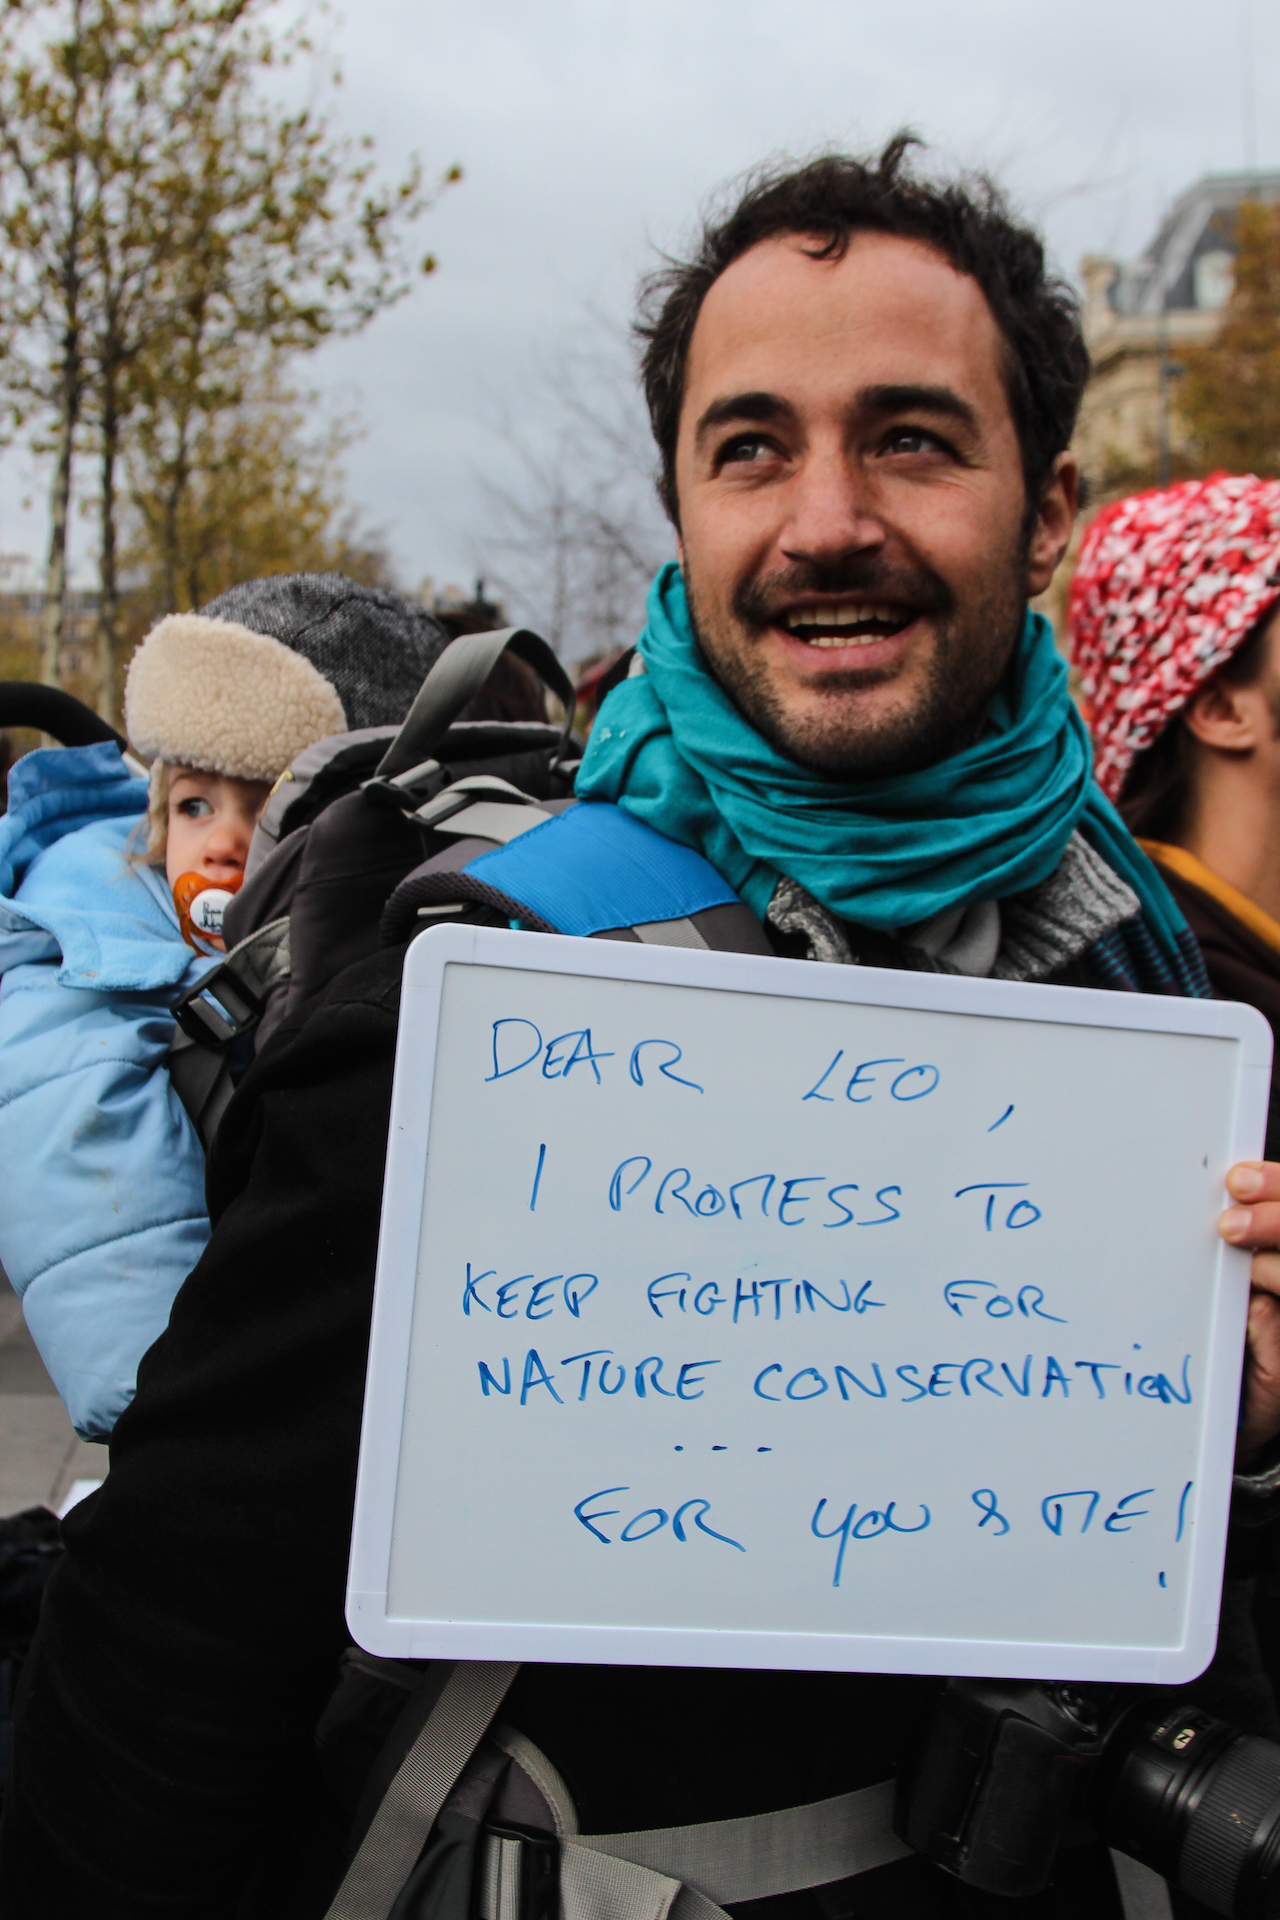 DEAR LEO,
I PROMESS TO
KEEP FIGHTING FOR
NATURE CONSERVATiON
...
FOR YOU & ME!
N